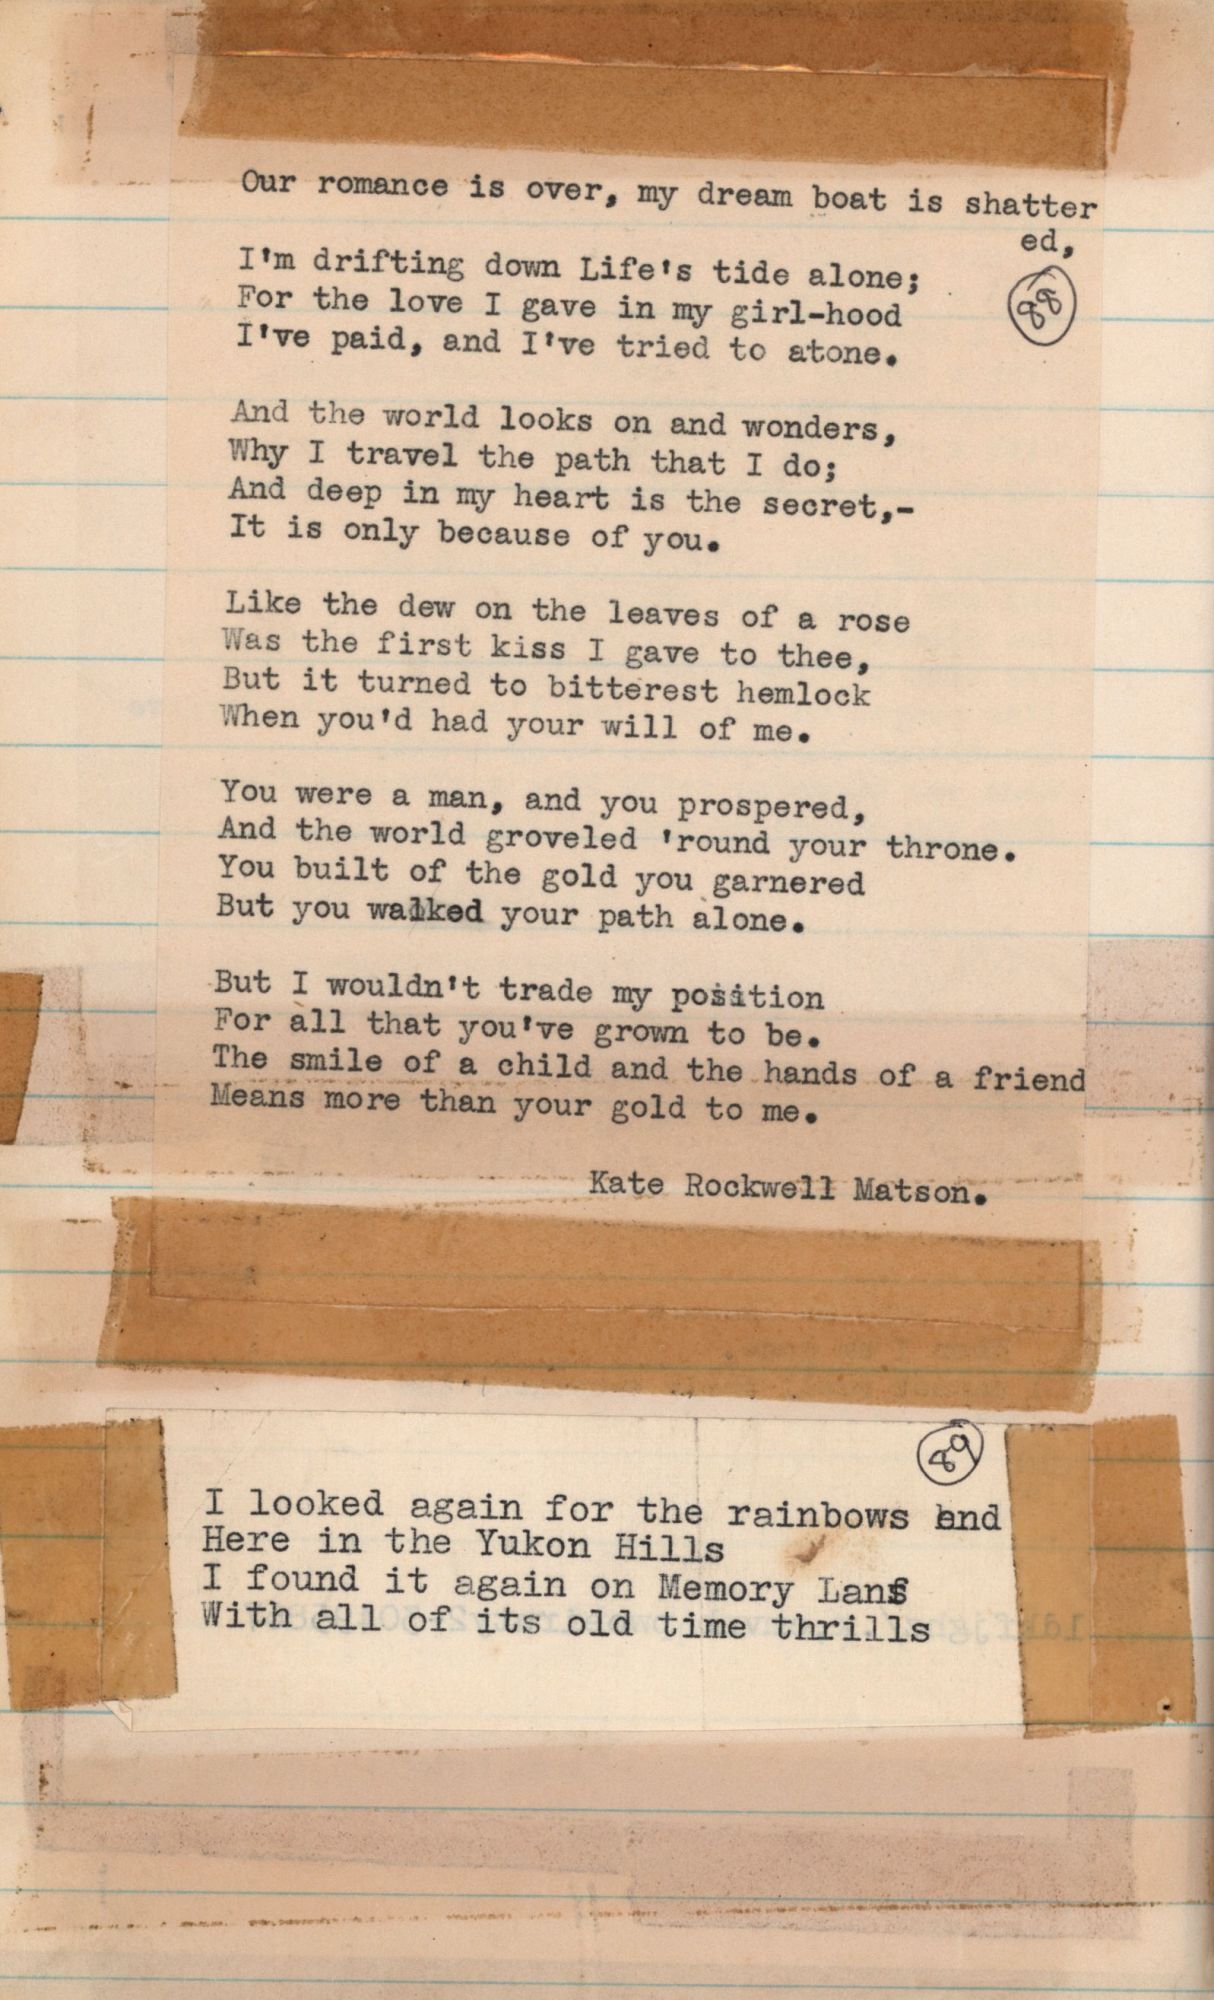 Our romance is over, my dream boat is shatter
ed,
I'm drifting down Life's tide alone;
88
For the love I gave in my girl-hood
I've paid, and I've tried to atone.
And the world looks on and wonders,
Why I travel the path that I do;
And deep in my heart is the secret,-
It is only because of you.
Like the dew on the leaves of a rose
Was the first kiss I gave to thee,
But it turned to bitterest hemlock
When you'd had your will of me.
You were a man, and you prospered,
And the world groveled 'round your throne.
You built of the gold you garnered
But you walked your path alone.
But I wouldn't trade my position
For all that you've grown to be.
The smile of a child and the hands of a friend
Means more than your gold to me.
Kate Rockwell Matson.
89
I looked again for the rainbows end
Here in the Yukon Hills
I found it again on Memory Lane
With all of its old time thrills